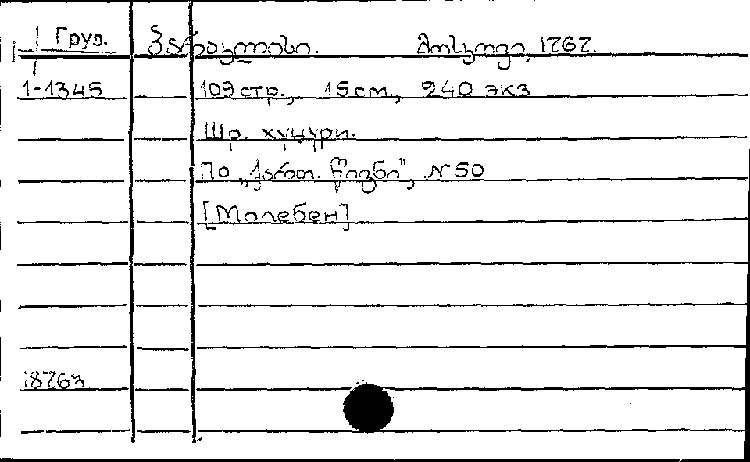 Груз. პარაკლისი. მოსკოვი, 1767.
1-1345 109 стр., 15 см., 240 экз
Шр. хуцури.
По „ქართ. წიგნი", №50
[Молебен]